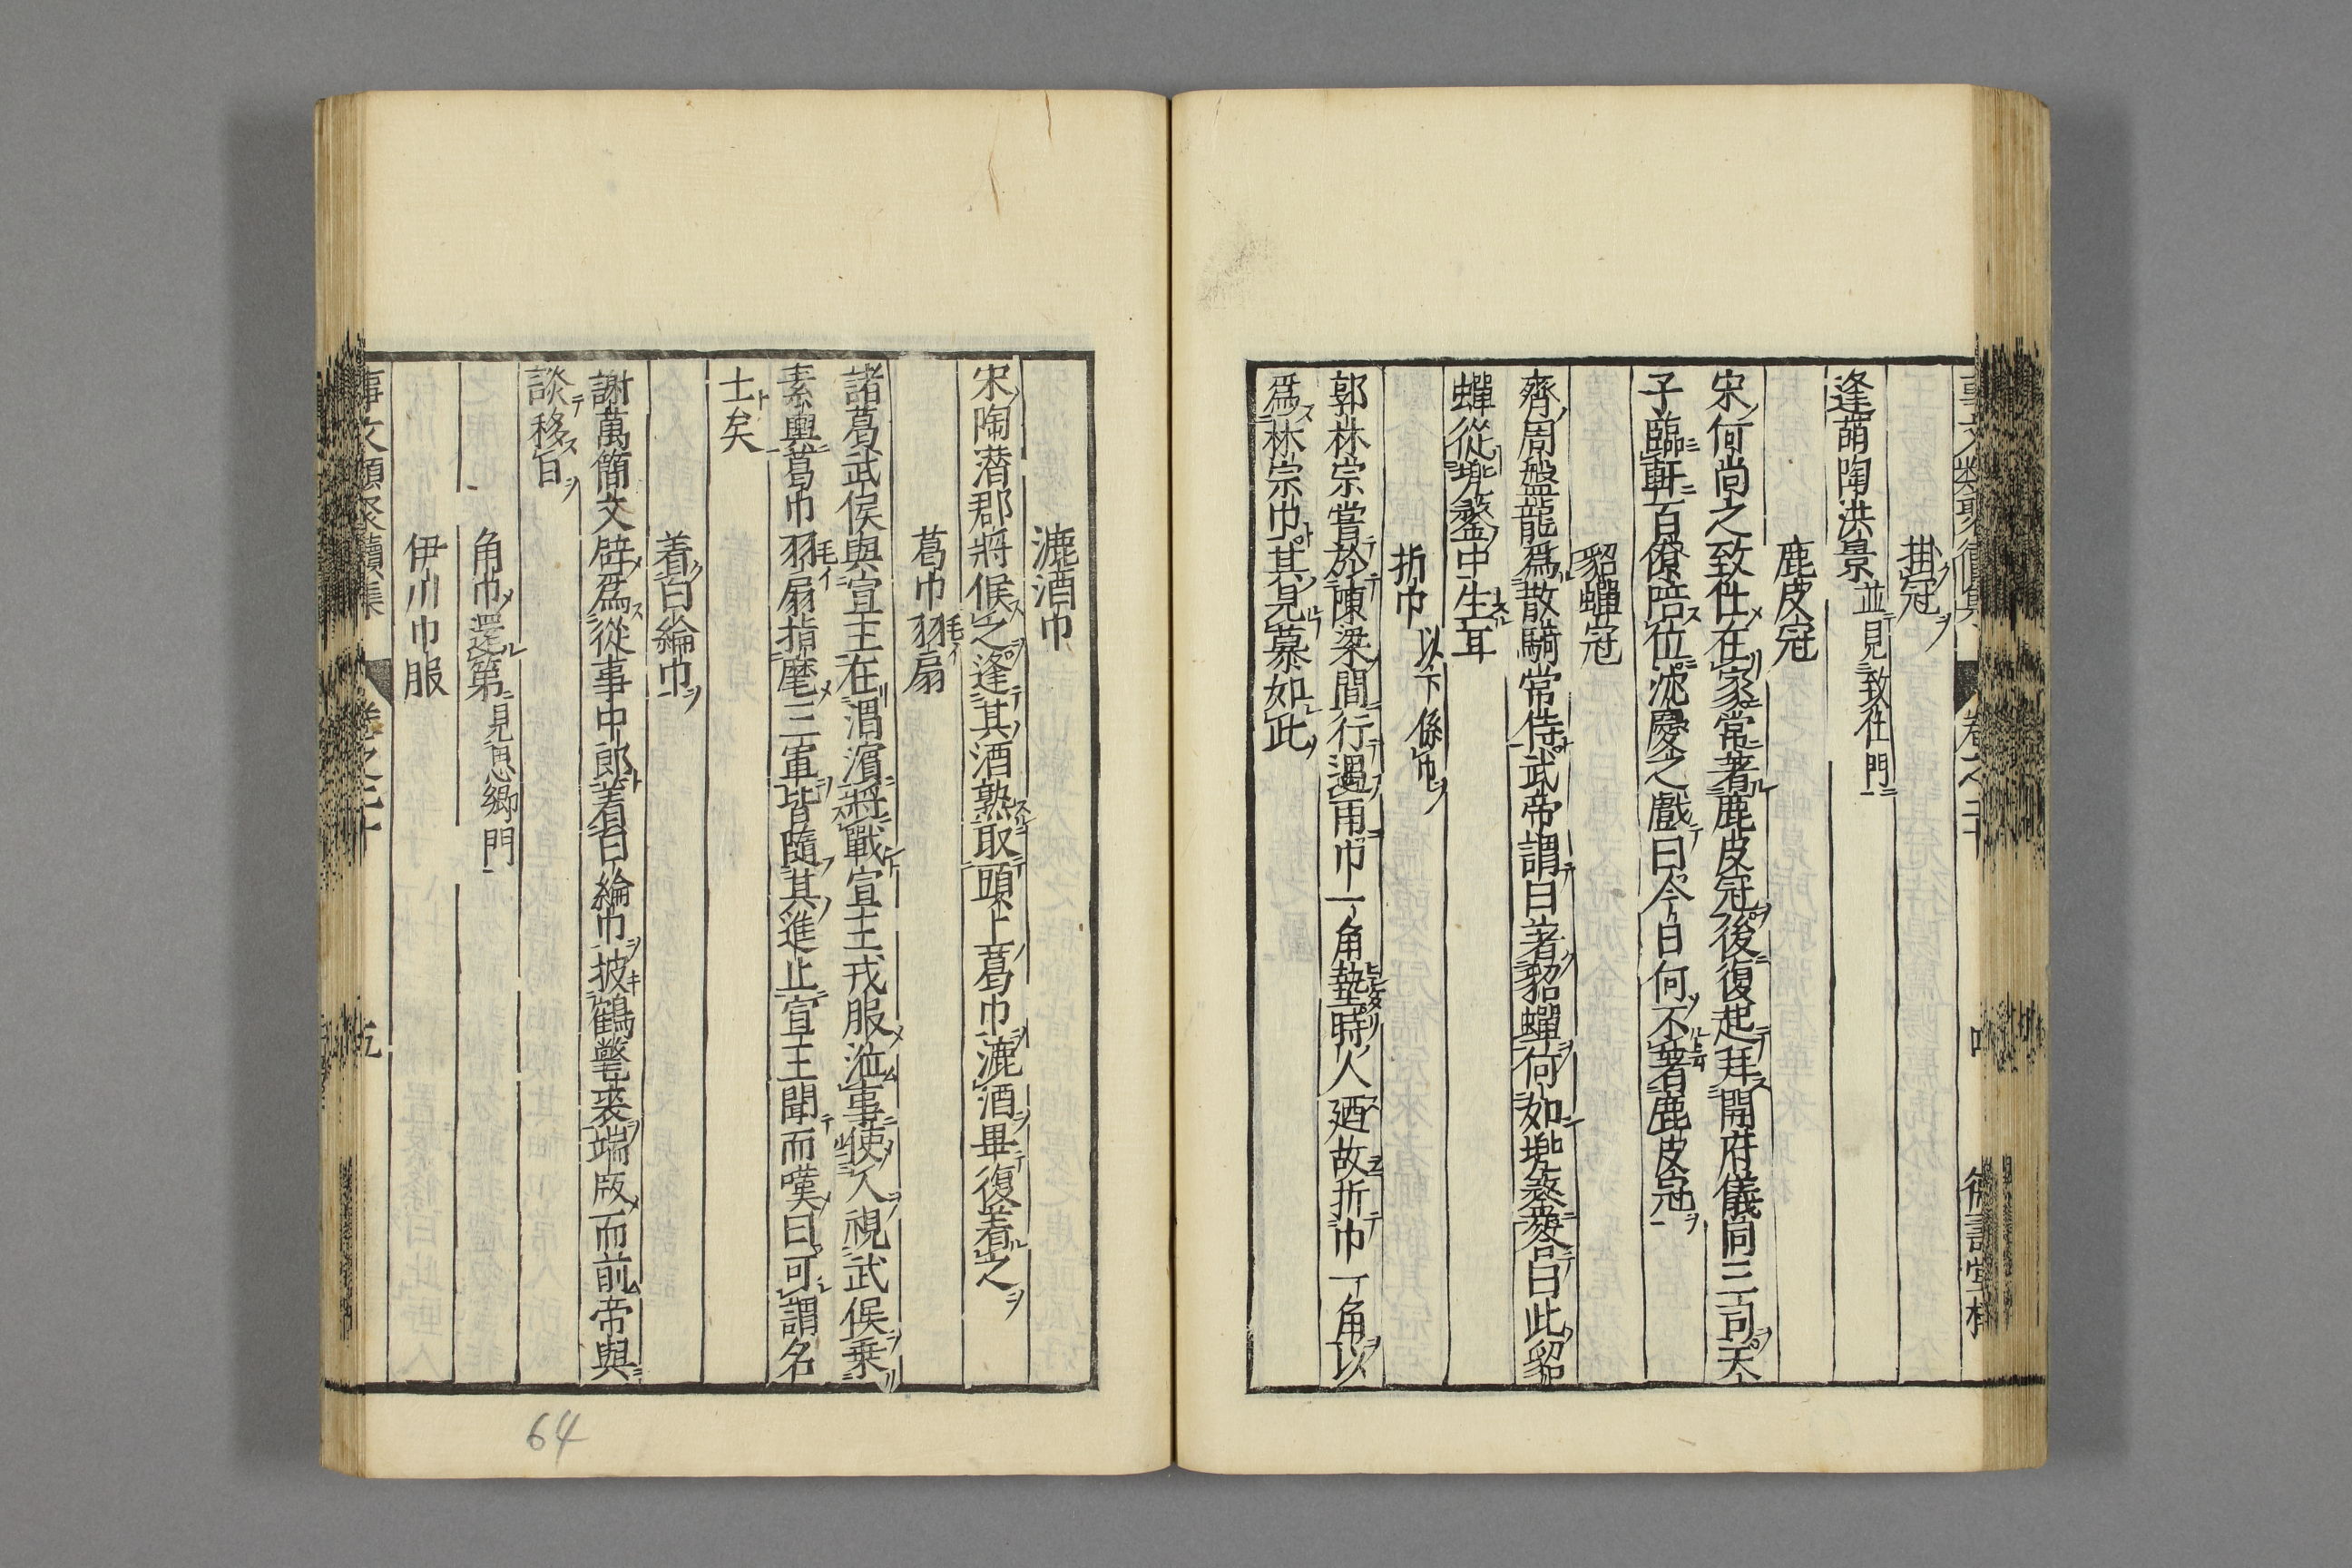 掛冠
逢萌陶洪景並見致仕門
鹿皮冠
宋何尚之致仕在家常著鹿皮冠後復起拜開府儀同三司天
子臨軒百僚陪位沈慶之戲曰今日何不著鹿皮冠
貂蟬冠
齊周盤龍爲散騎常侍武帝謂曰著貂蟬何如兠鍪荅曰此貂
蟬從兠鍪中生耳
折巾 以下係巾
郭林宗嘗於陳梁間行遇雨巾一角墊時人廼故折巾一角以
爲林宗巾其見慕如此
漉酒巾
宋陶潜郡將候之逢其酒熟取頭上葛巾漉酒畢復着之
葛巾羽扇
諸葛武侯與宣王在渭濵將戰宣王戎服涖事使人視武侯乗
素輿葛巾羽扇指麾三軍皆隨其進止宣王聞而嘆曰可謂名
士矣
着白綸巾
謝萬簡文辟爲從事中郎着白綸巾披鶴氅裘端版而前帝與
談移日
角巾還第見思鄉門
伊川巾服
事文類聚續集 卷之二十
64